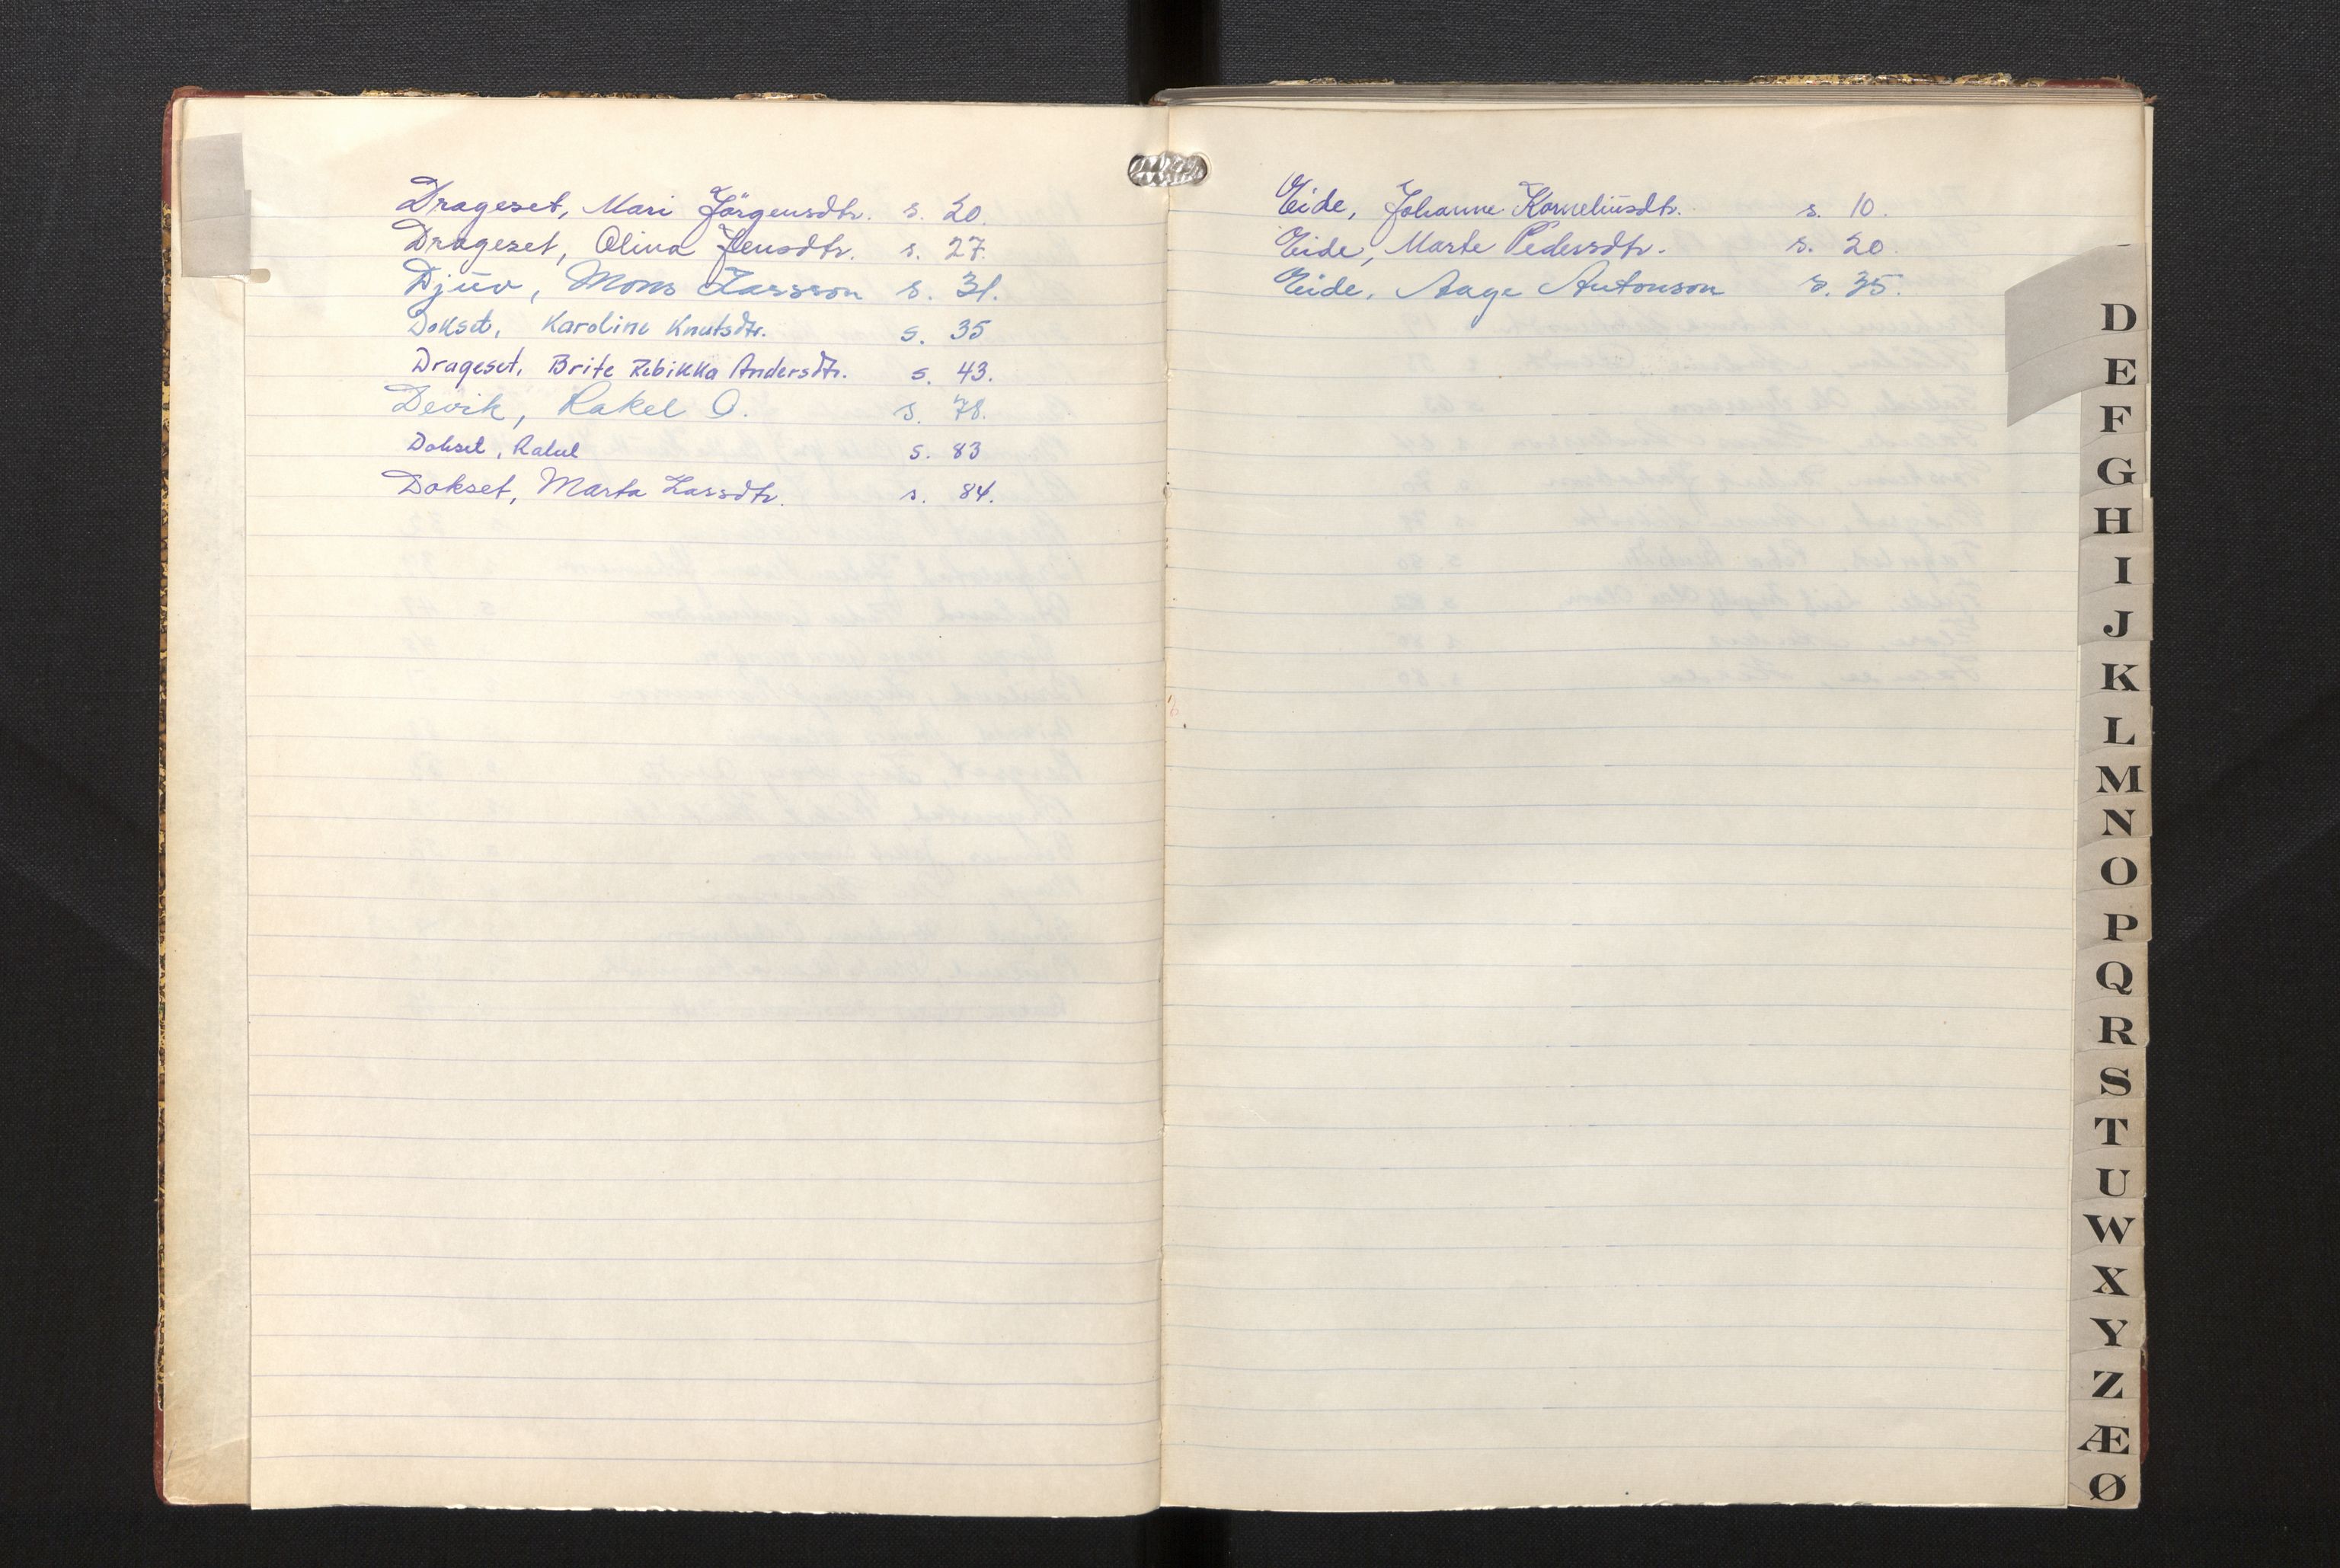 Drageset, Mari Jörgensdtr. s. 20.
Drageset, Olina Jensdtr. s. 27.
Djuv, Mons Larsson s. 31.
Dokset, Karoline Knutsdtr. s. 35
Drageset, Brite Rebikka Andersdtr. s. 43.
Devik, Rakel O. s. 78.
Dokset, Rakel s. 83
Dokset, Marta Larsdtr. s. 84.
Eide, Johanne Korneliusdtr. s. 10.
Eide, Marte Pedersdtr. s. 20
Eide, Aage Antonson s. 35.
D
E
F
G
H
I
J
K
L
M
N
O
P
Q
R
S
T
U
W
X
Y
Z
Æ
Ø